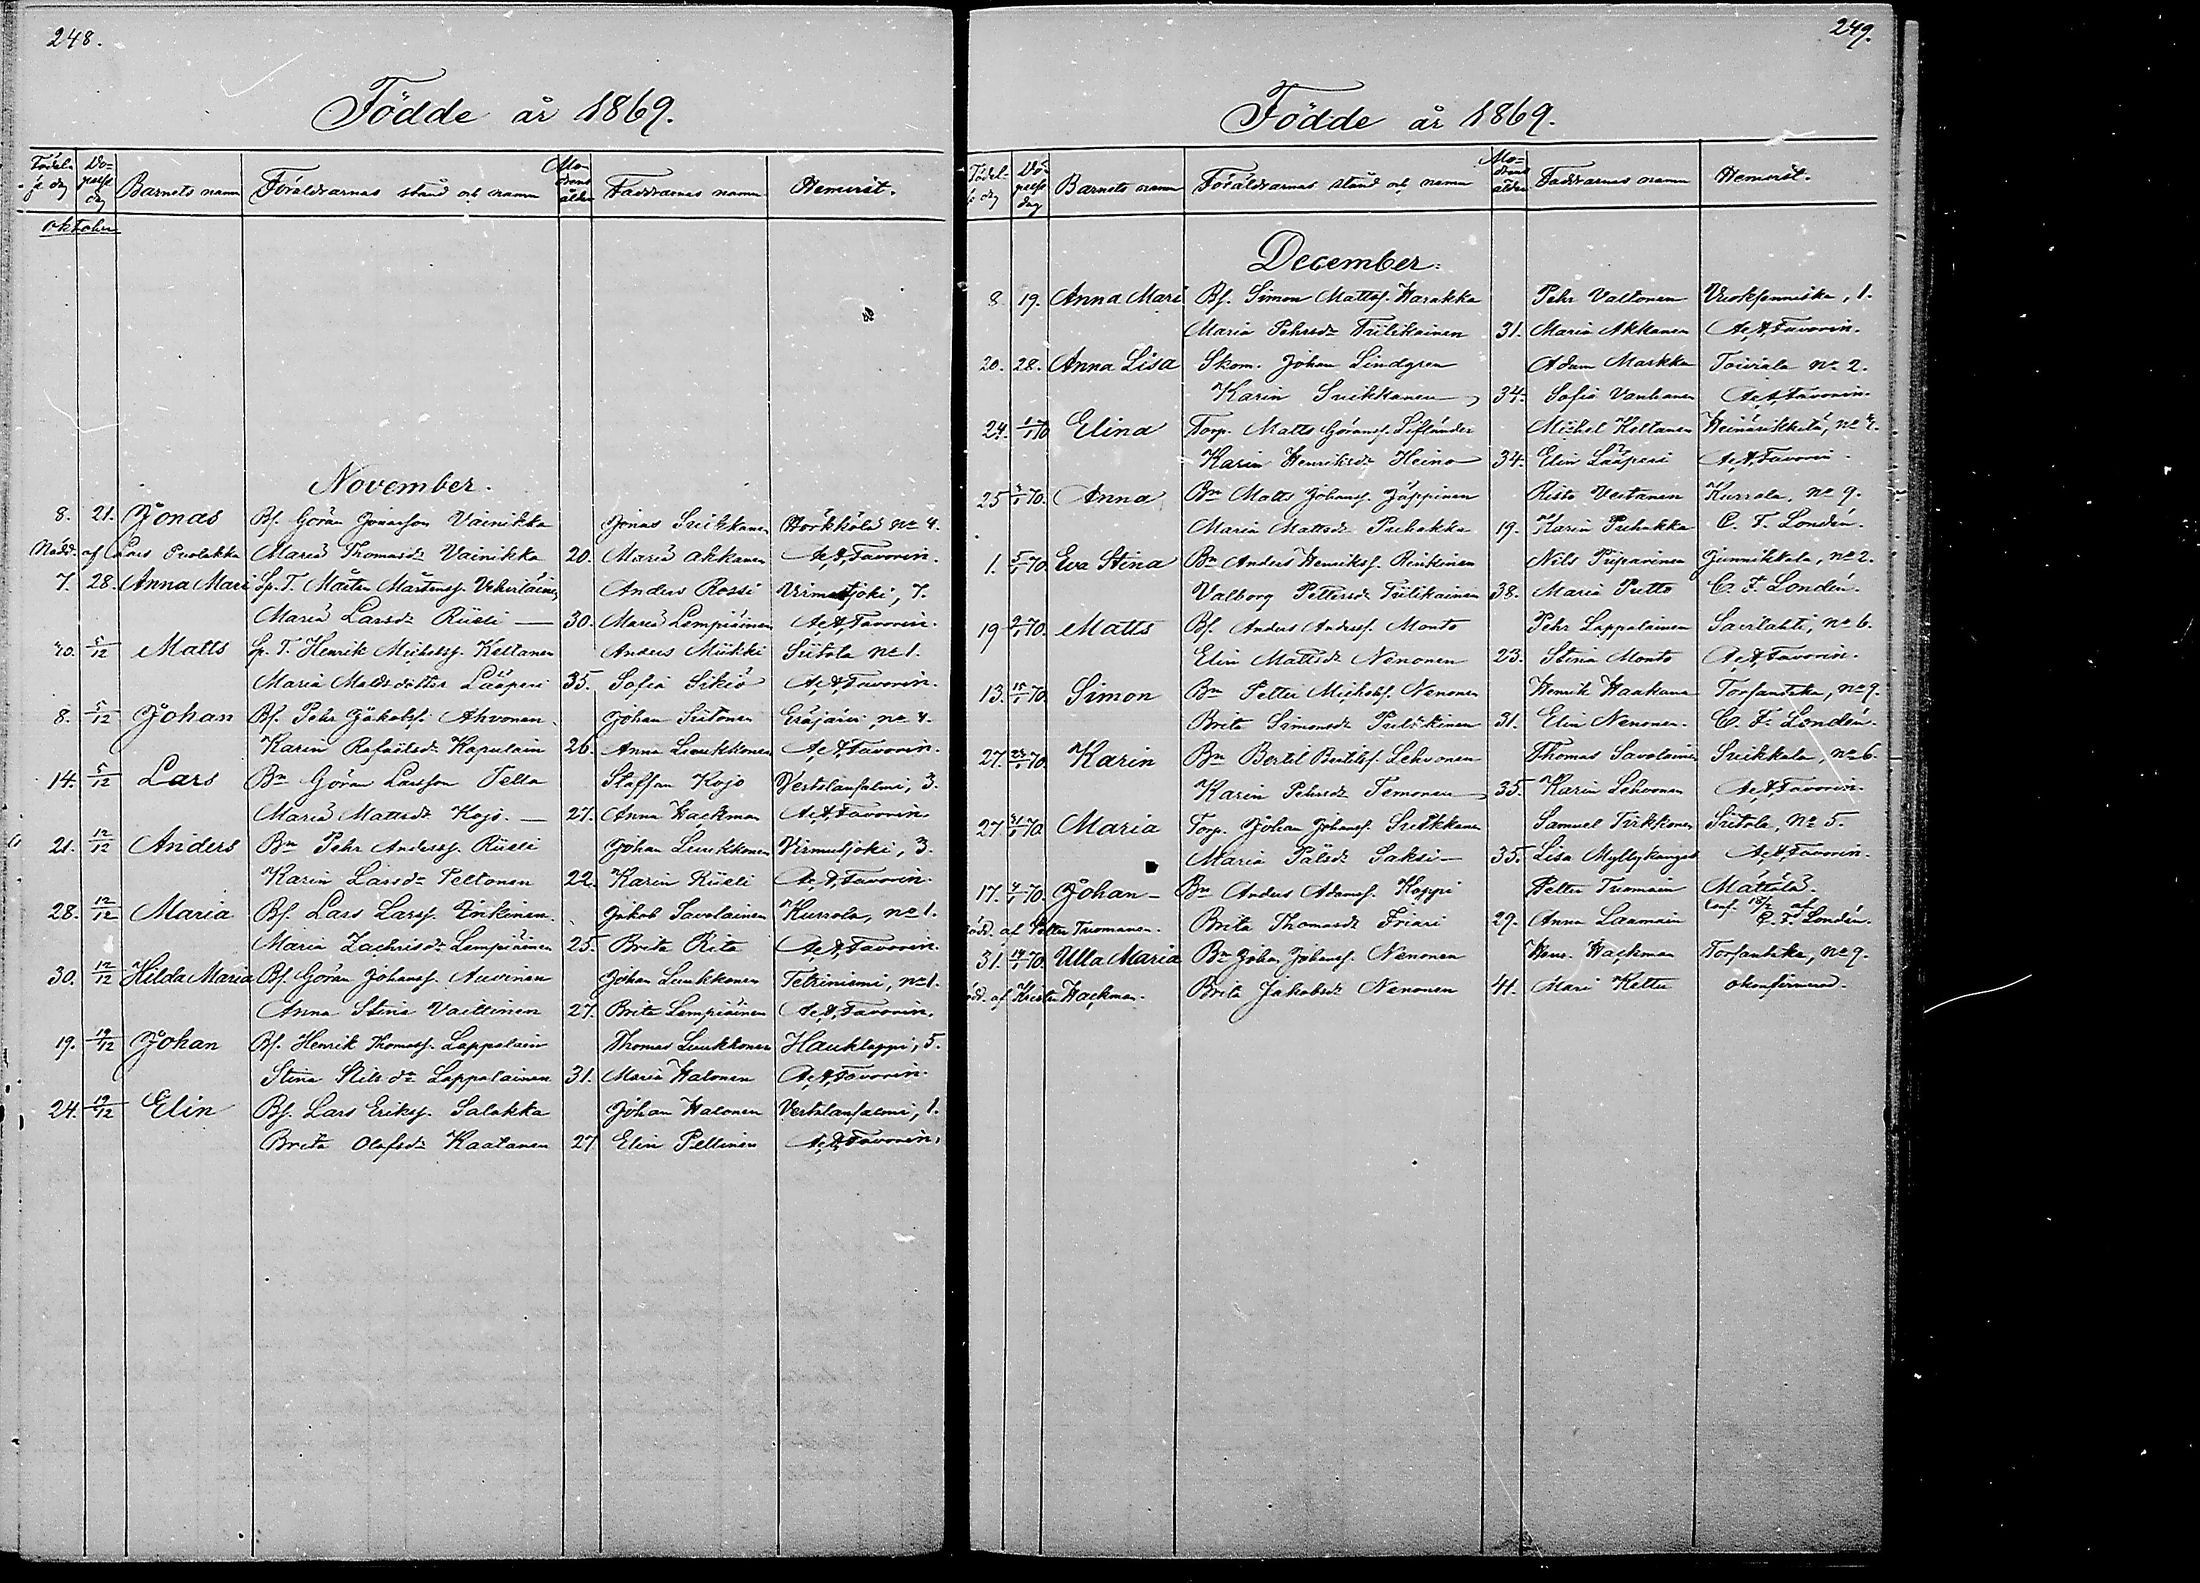 248.
Födde år 1869.
Födel-se dag Do-pelse dag Barnets namn Föräldrarnas stånd och namn Mo-drens ålder Faddrarnas namn Hemvist.
Oktober
November.
8. 21. Jonas Bf. Göran Jönasson Vainikka Jonas Sveikkanen Hörkkölä No 4.
Nöddöpt af Lars Puolakka Maria Thomasdr Vainikka 20. Maria Akkanen A. A. Favorin.
7. 28. Anna Mari Sp. T. Mårten Mårtenss. Vekerläinen Anders Rossi Virmutjoki, 7.
Maria Larsdr Rüsli — 30. Maria Lempiäinen A. A. Favorin.
5/12 Matts Sp. T. Henrik Michelss. Keltanen Anders Mickki Siitola No 1.
Maria Matsdotter Lääperi 35. Sofia Sikiö A. A. Favorin.
8. 5/12 Johan Bf. Pehr Jakobss. Ahvonen Johan Siitonen Eräjärvi No 4.
Karin Rafaelsdr Kapulain 26. Anna Luukkonen A. A. Favorin.
14. 5/12 Lars Bn Göran Larsson Tella Staffan Kojo Vertslansalmi, 3.
Maria Mattsdr Kojo. — 27. Anna Hackman A. A. Favorin.
21. 12/12 Anders Bn Pehr Anderss. Rüsli Johan Luukkonen Virmutjoki, 3.
Karin Larsdr Peltonen 22. Karin Rüsli A. A. Favorin.
28. 12/12 Maria Bf. Lars Larss. Inkinen Jakob Savolainen Kurrola, No 1.
Maria Zachrisdr Lempiäinen 25. Brita Rita A. A. Favorin.
30. 12/12 Hilda Maria Bf. Göran Johanss. Auvinen Johan Luukkonen Tetriniemi, No 1.
Anna Stina Vaittinen 27. Brita Lempiäinen A. A. Favorin.
19. 19/12 Johan Bf. Henrik Thomass. Lappalain Thomas Luukkonen Haukloppi, 5.
Stina Nilsdr Lappalainen 31. Maria Halonen A. A. Favorin.
24. 19/12 Elin Bf. Lars Erikss. Salakka Johan Halonen Vertslansalmi, 1.
Brita Olofsdr Kaatanen 27. Elin Pellinen A. A. Favorin.
249.
Födde år 1869.
Födel-se dag Dö-pelse dag Barnets namn Föräldrarnas stånd och namn Mo-drens ålder Faddrarnas namn Hemvist.
December.
8 19. Anna Mari Bf. Simon Matts. Harakka Pehr Valtonen Vuoksenniska, 1.
Maria Pehrsdr Tiilikainen 31. Maria Akkanen A. A. Favorin.
20. 28. Anna Lisa Skom. Johan Lindgren Adam Markka Toivala No 2.
Karin Sveikkanen 34. Sofia Vanhanen A. A. Favorin.
24. 1/1 70 Elina Torp. Matts Göranss. Liflander Michel Keltanen
Karin Henriksdr Heino 34. Elin Lääperi A. A. Favorin.
25 70. Anna Bn Matts Johanss. Jäppinen Risto Vertanen Kurrola, No 9.
Maria Mattsdr Puhakka 19. Karin Puhakka C. F. Londén.
1. 5/1 70 Eva Stina Bn Anders Henrikss. Rinkinen Nils Piiparinen Junnikkala, No 2.
Valborg Pettersdr Tiilikainen 38. Maria Putto C. F. Londén.
19 9/1 70. Matts Bf. Anders Anderss. Monto Pehr Lappalainen Saarlahti, No 6.
Elin Mattsdr Nenonen 23. Stina Monto A. A. Favorin.
13. 15/1 70. Simon Bn Petter Michelss. Nenonen Henrik Haakana Torsantaka, No 9.
Brita Simonsdr Pulkkinen 31. Elin Nenonen. C. F. Londén.
27. 23/1 70 Karin Bn Bertil Bertilss. Lehvonen Thomas Savolainen Sveikkala, No 6.
Karin Pehrsdr Temonen 35. Karin Lehvonen A. A. Favorin.
27 21/1 70 Maria Torp. Johan Johanss. Sveikkanen Samuel Tirkkonen Siitola, No 5.
Maria Pålsdr Saksi — 35. Lisa Myllykangas A. A. Favorin.
17. 70. Johan — Bn Anders Adamss. Koppi Petter Tuomain Mattila.
nöd. af Petter Tuomanen. Brita Thomasdr Friari 29. Anna Laamain conf. 18/2 af C. F. Londén.
31. 19/1 70. Ulla Maria Bn Johan Johanss. Nenonen Henr. Hackman Torsantaka, No 9.
nöd. af Krister Hackman. Brita Jakobsdr Nenonen 41. Mari Kettu okonfirmerad.